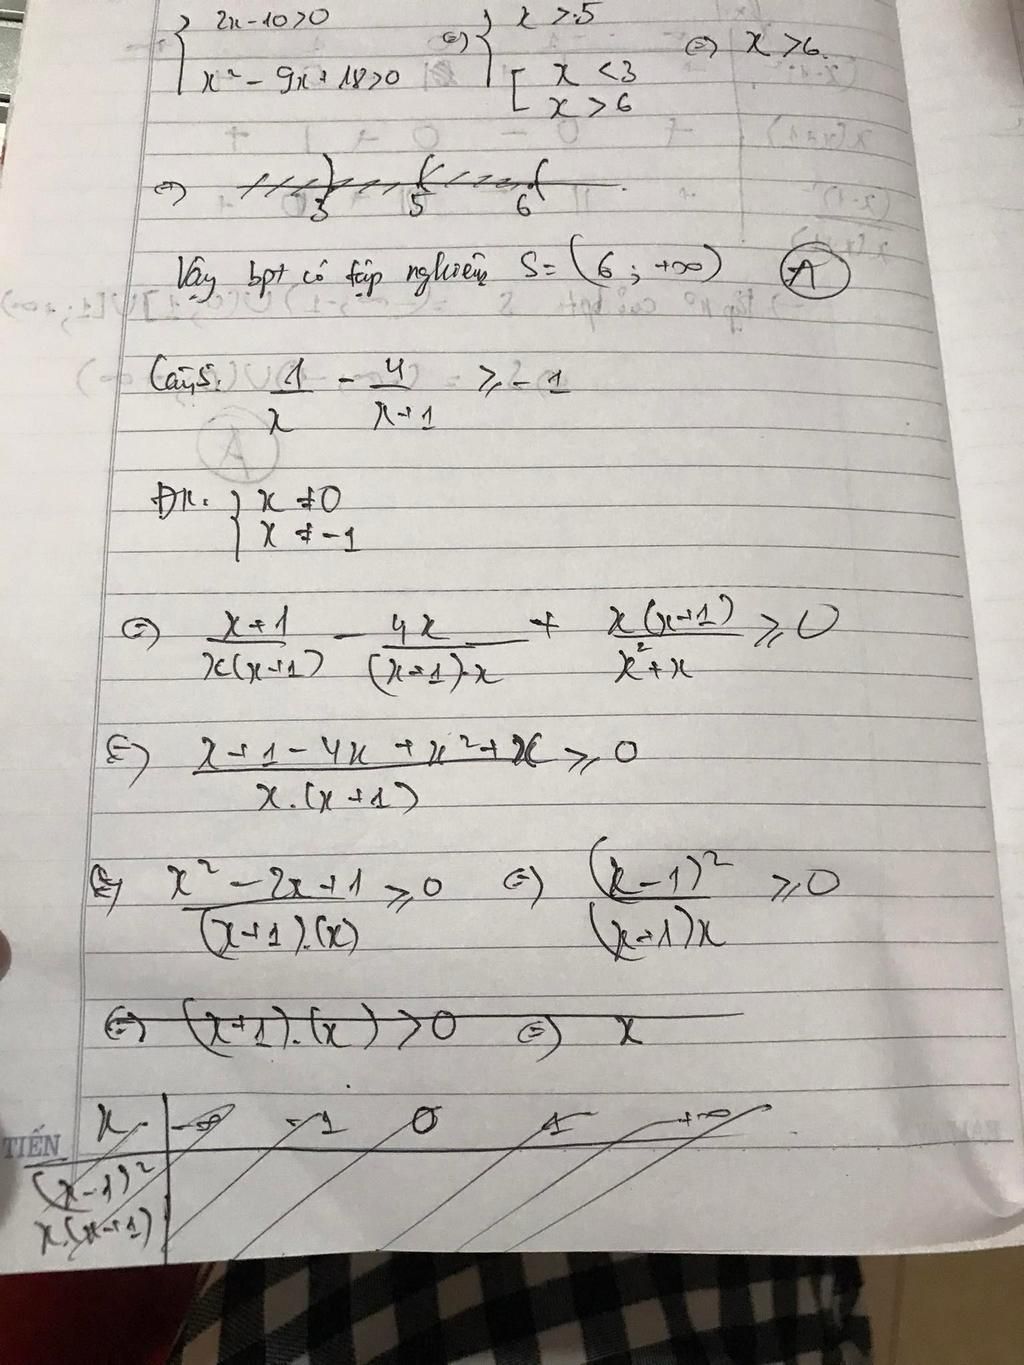 { 2x-10>0 ⇔ { x >5 ⇔ x >6.
x² - 9x+18>0 [ x <3
x >6
⇒ 3 5 6
Vậy bpt có tập nghiệm S= (6; +∞) A
Câu5. 1/x - 4/(x+1) ≥ -1
ĐK. { x ≠ 0
x ≠ -1
⇔ (x+1)/(x(x+1)) - 4x/((x+1).x) + x(x+1)/(x²+x) ≥ 0
⇔ (x+1-4x+x²+x)/(x.(x+1)) ≥ 0
⇔ (x²-2x+1)/((x+1).(x)) ≥ 0 ⇔ (x-1)²/((x+1)x) ≥ 0
⇔ (x+1).(x) >0 ⇔ x
x -∞ -1 0 1 +∞
TIẾN
(x-1)²
x.(x+1)